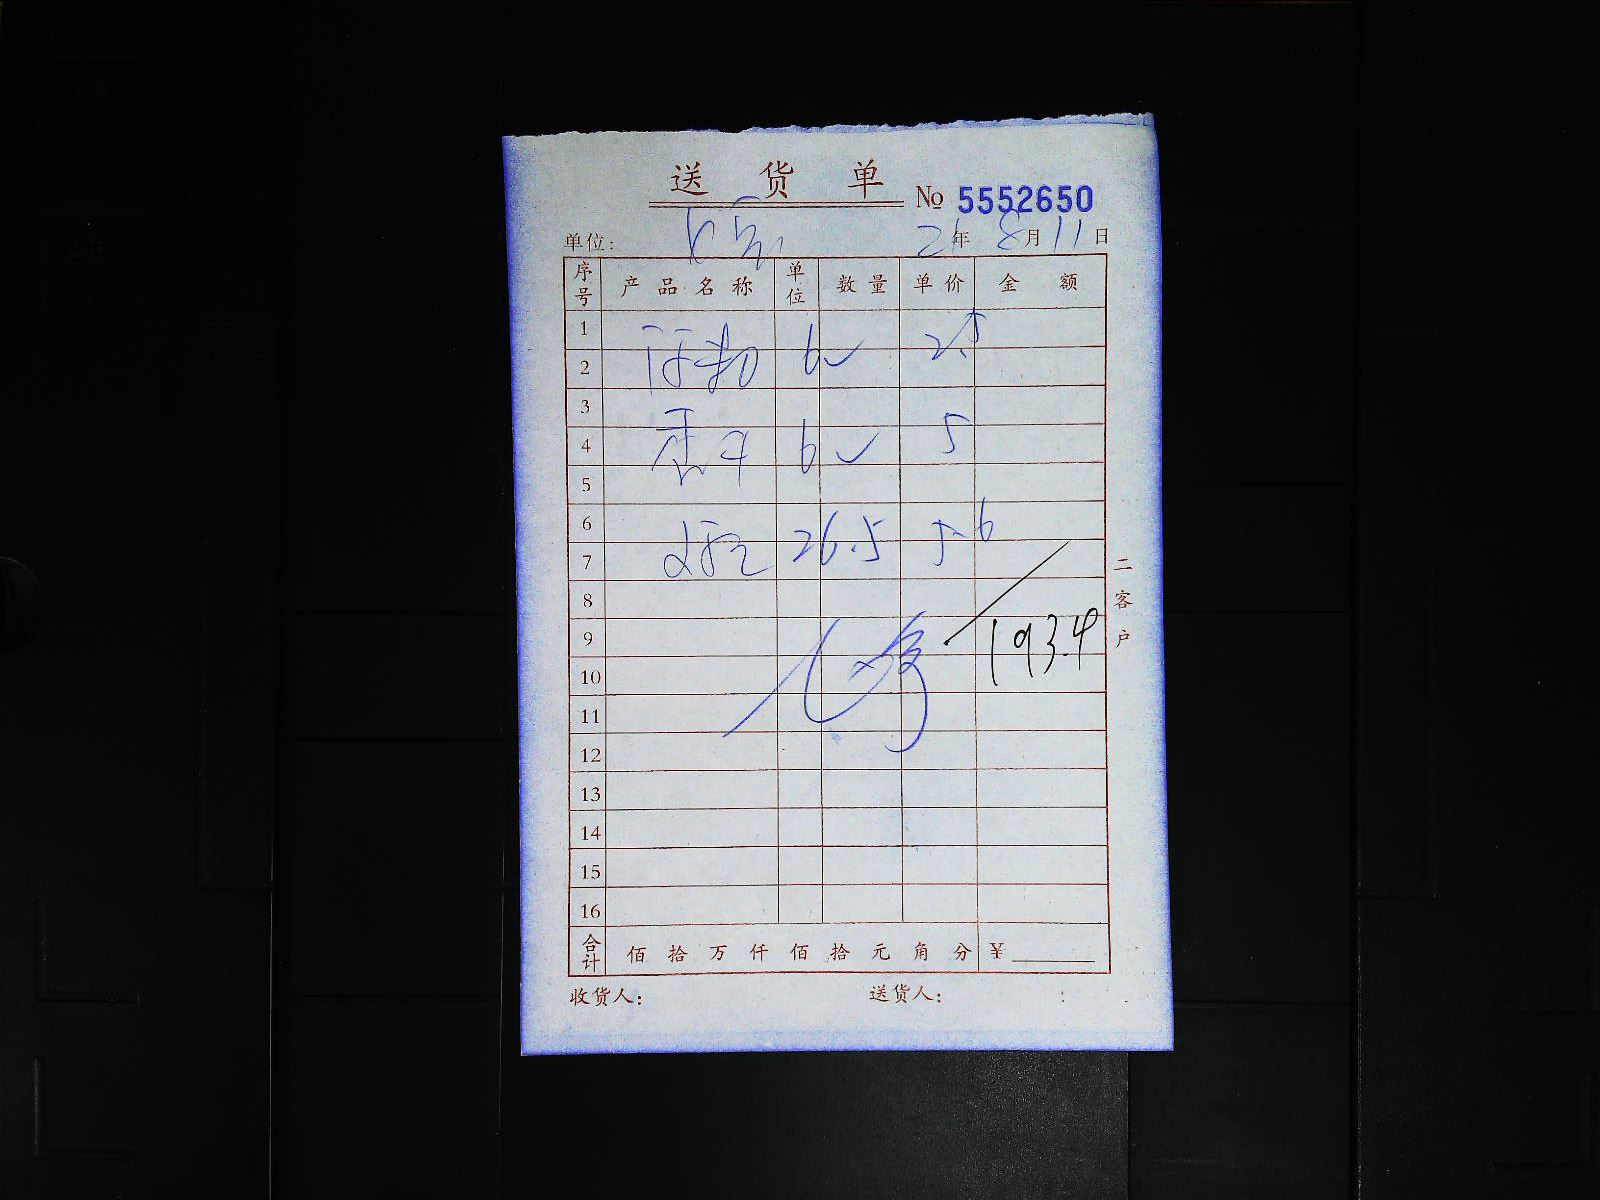 送货单
№ 5552650
单位: 21年 8月 11日
序号 产品名称 单位 数量 单价 金额
1
2 6 2.5
3
4 香干 6 5
5
6
7 26.5 5.6
8
9 193.4
10
11
12
13
14
15
16
合计 佰 拾 万 仟 佰 拾 元 角 分 ¥
收货人: 送货人:
二客户